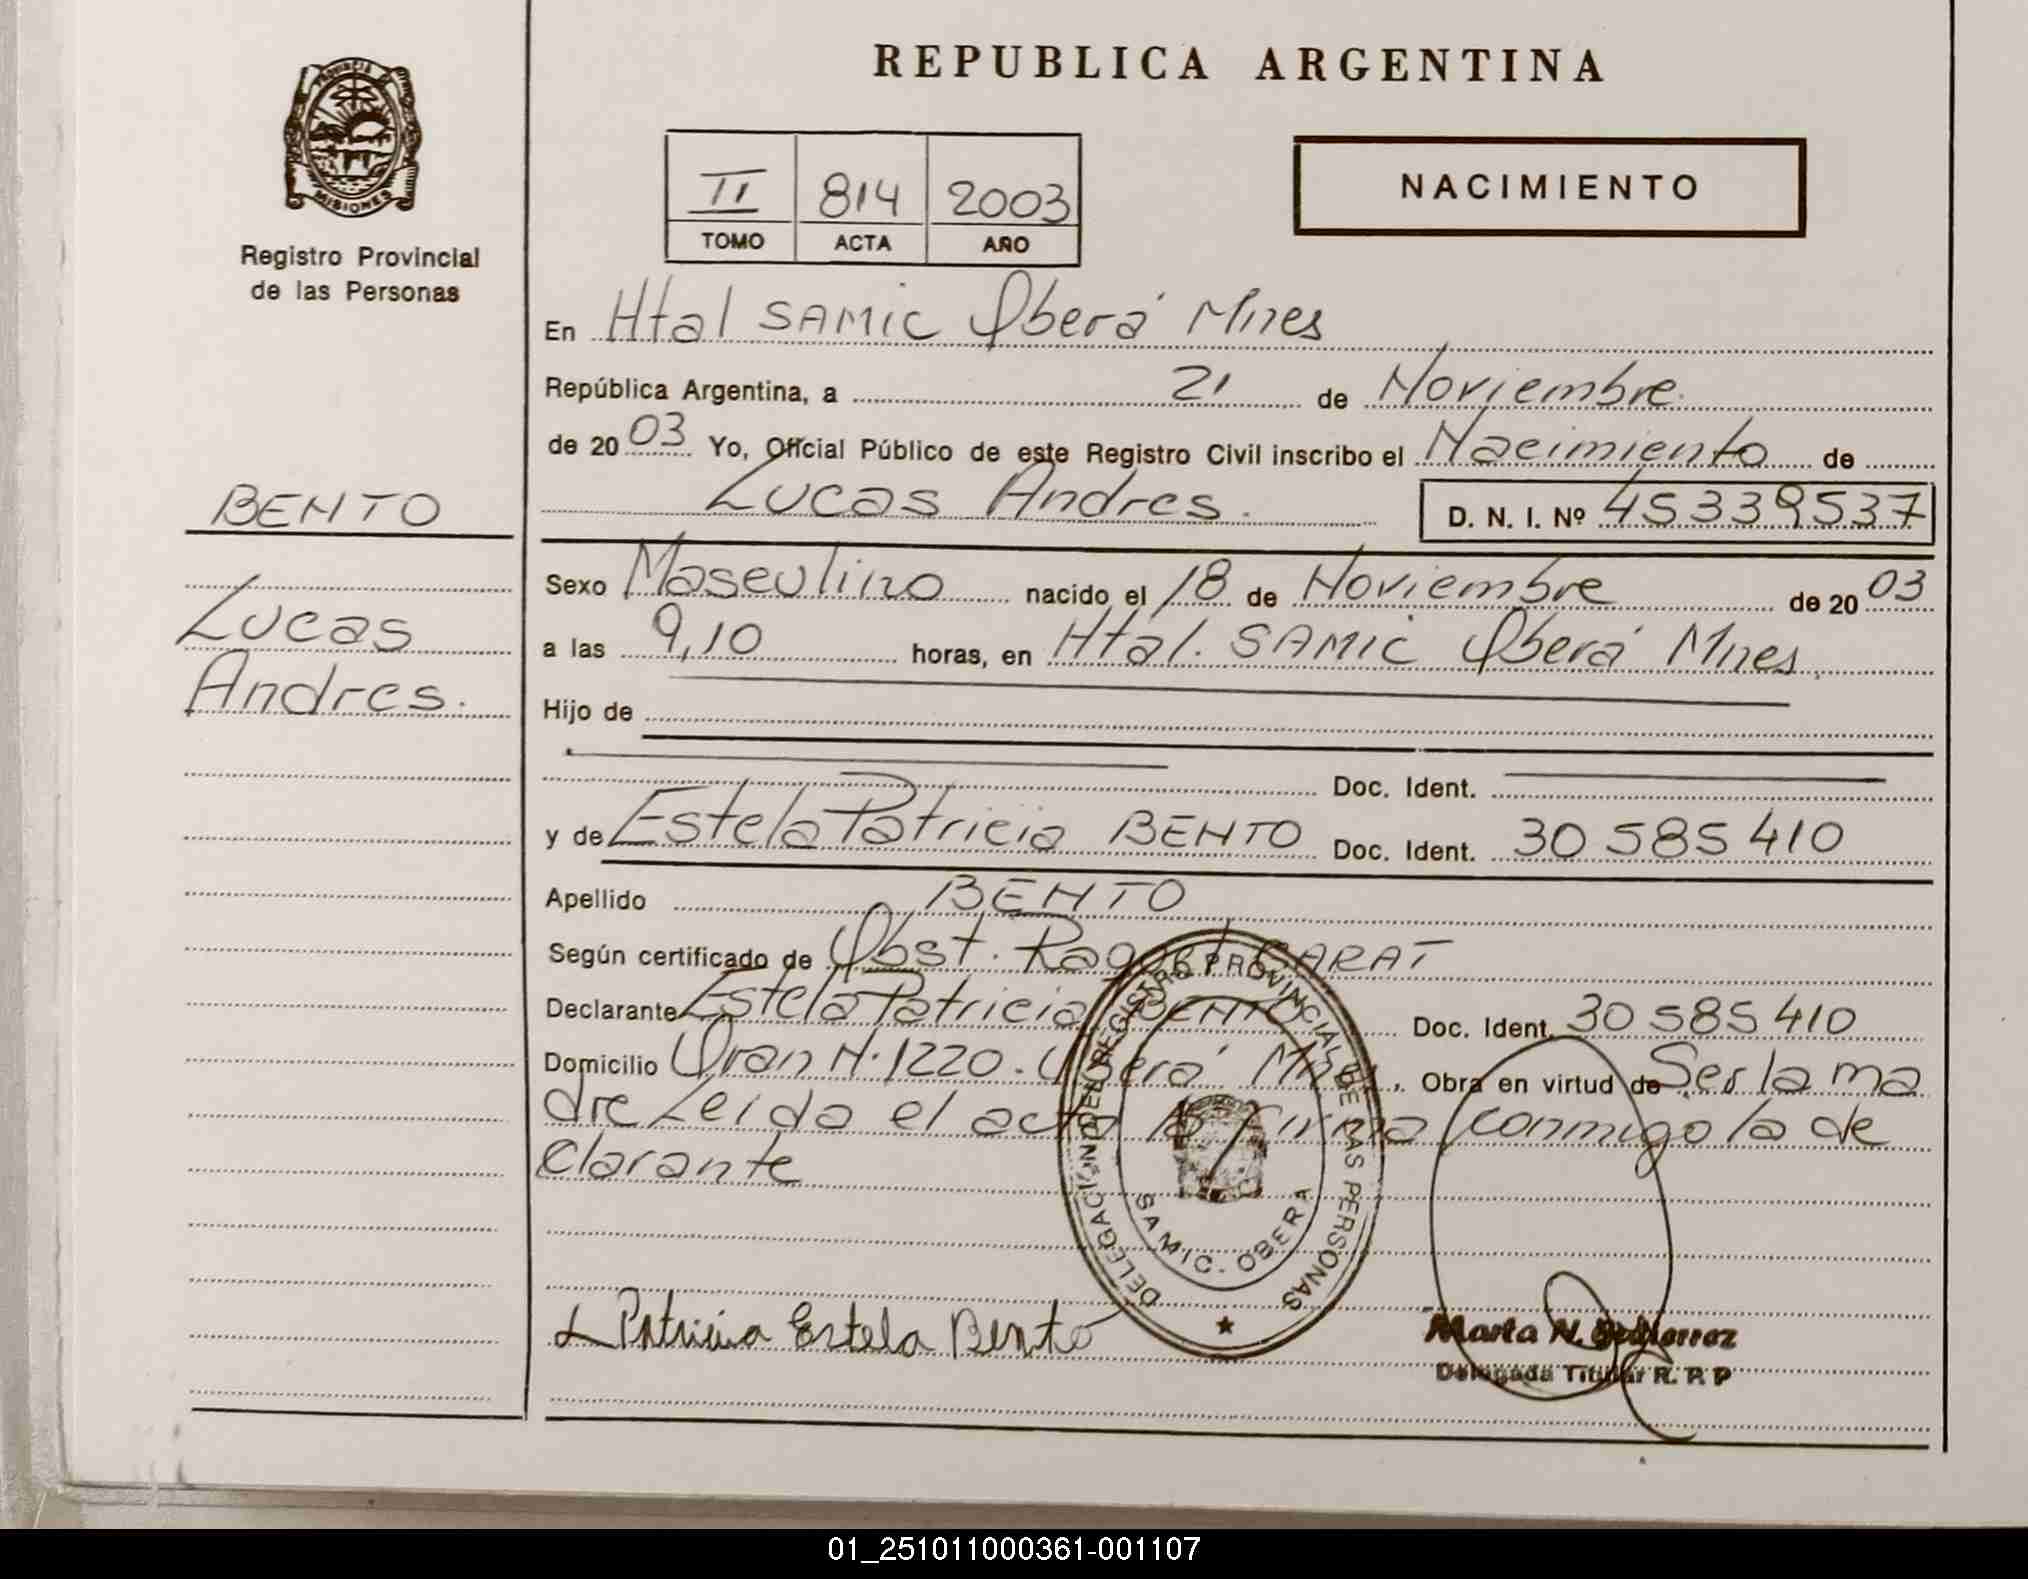 REPUBLICA ARGENTINA
PROVINCIA DE MISIONES
Registro Provincial
de las Personas
II 814 2003
TOMO ACTA AÑO
NACIMIENTO
BENTO
Lucas
Andres.
En Htal SAMIC Oberá Mnes
República Argentina, a 21 de Noviembre
de 2003 Yo, Oficial Público de este Registro Civil inscribo el Nacimiento de
Lucas Andres. D. N. I. Nº 45339537
Sexo Masculino nacido el 18 de Noviembre de 2003
a las 9,10 horas, en Htal. SAMIC Oberá Mnes
Hijo de
Doc. Ident.
y de Estela Patricia BENTO Doc. Ident. 30 585 410
Apellido BENTO
Según certificado de Obst. Raquel
Declarante Estela Patricia BENTO Doc. Ident. 30 585 410
Domicilio Oran N. 1220. Oberá Mnes. Obra en virtud de Ser la ma
dre Leida el acta la firma conmigo la de
clarante
DELEGACION DEL REGISTRO PROVINCIAL DE LAS PERSONAS
SAMIC. OBERA
Patricia Estela Bento
Marta N. Gutierrez
Delegada Titular R. P. P
01_251011000361-001107